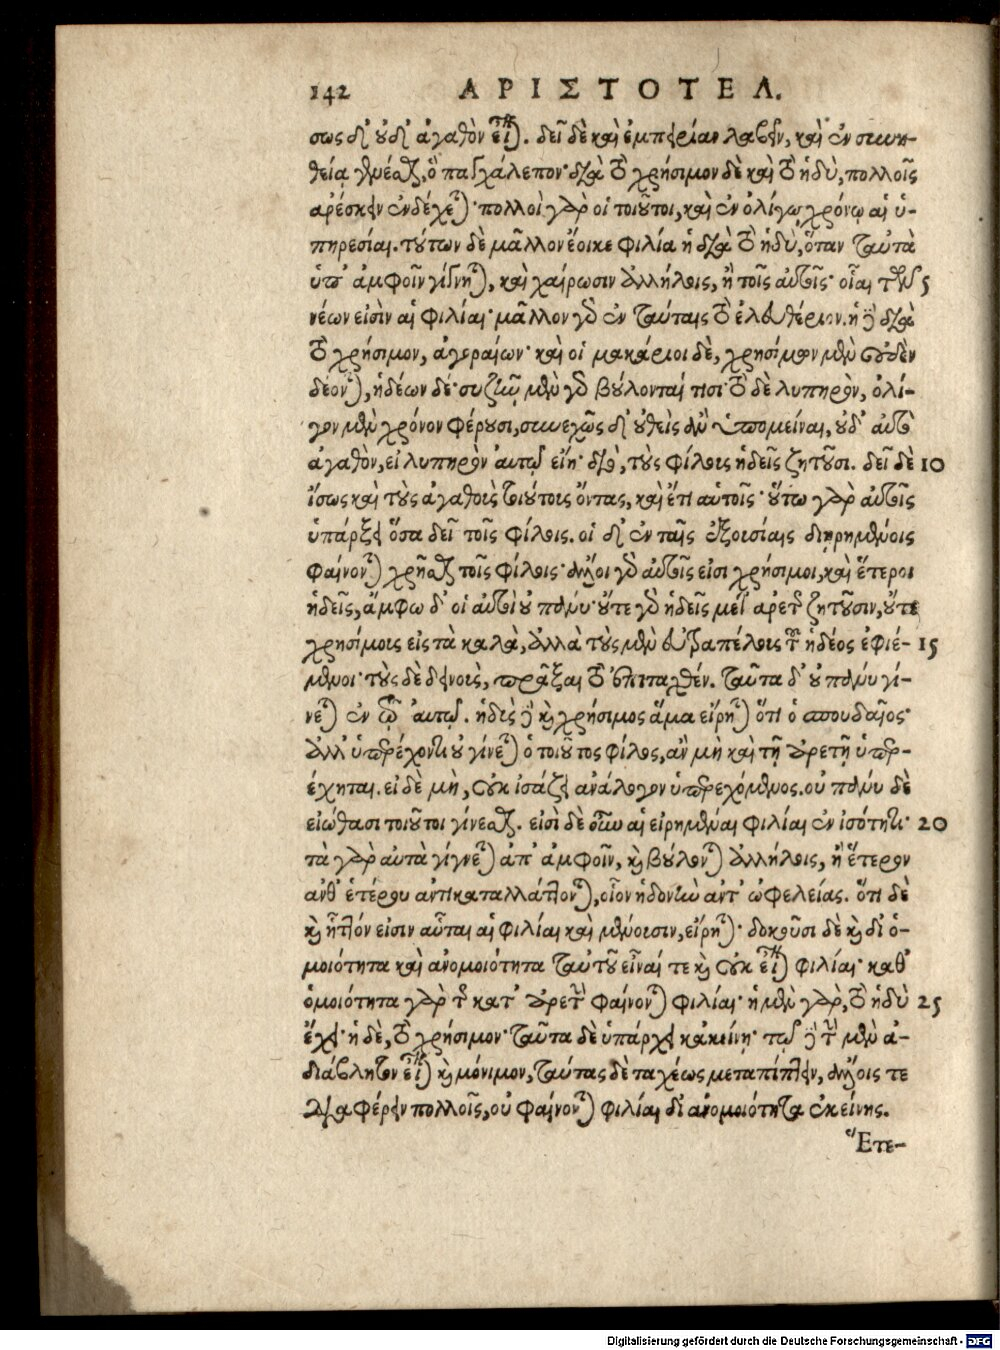 142 ΑΡΙΣΤΟΤΕΛ.
σως δ' οὐδ' ἀγαθὸν εἶναι. δεῖ δὲ καὶ ἐμπειρίαν λαβεῖν, καὶ ἐν συνη-
θείᾳ γενέσθαι, ὃ παγχάλεπον· διὰ τὸ χρήσιμον δὲ καὶ τὸ ἡδὺ, πολλοῖς
ἀρέσκειν ἐνδέχεται· πολλοὶ γὰρ οἱ τοιοῦτοι, καὶ ἐν ὀλίγῳ χρόνῳ αἱ ὑ-
πηρεσίαι. τούτων δὲ μᾶλλον ἔοικε φιλίᾳ ἡ διὰ τὸ ἡδὺ, ὅταν ταὐτὰ
ὑπ' ἀμφοῖν γίγνηται, καὶ χαίρωσιν ἀλλήλοις, ἢ τοῖς αὐτοῖς· οἷαι τῶν 5
νέων εἰσὶν αἱ φιλίαι· μᾶλλον γὰρ ἐν ταύταις τὸ ἐλευθέριον. ἡ δὲ διὰ
τὸ χρήσιμον, ἀγοραίων· καὶ οἱ μακάριοι δὲ, χρησίμων μὲν οὐδὲν
δέονται, ἡδέων δέ· συζῆν μὲν γὰρ βούλονταί τισι· τὸ δὲ λυπηρὸν, ὀλί-
γον μὲν χρόνον φέρουσι, συνεχῶς δ' οὐθεὶς ἂν ὑπομείναι, οὐδ' αὐτὸ
ἀγαθὸν, εἰ λυπηρὸν αὐτῷ εἴη· διὸ, τοὺς φίλους ἡδεῖς ζητοῦσι. δεῖ δὲ 10
ἴσως καὶ τοὺς ἀγαθοὺς τοιούτους ὄντας, καὶ ἔτι αὑτοῖς· οὕτω γὰρ αὐτοῖς
ὑπάρξει ὅσα δεῖ τοῖς φίλοις. οἱ δ' ἐν ταῖς ἐξουσίαις διῃρημένοις
φαίνονται χρῆσθαι τοῖς φίλοις· ἄλλοι γὰρ αὐτοῖς εἰσι χρήσιμοι, καὶ ἕτεροι
ἡδεῖς, ἄμφω δ' οἱ αὐτοὶ οὐ πάνυ· οὔτε γὰρ ἡδεῖς μετ' ἀρετῆς ζητοῦσιν, οὔτε
χρησίμους εἰς τὰ καλὰ, ἀλλὰ τοὺς μὲν εὐτραπέλους τοῦ ἡδέος ἐφιέ- 15
μενοι· τοὺς δὲ δεινοὺς, πρᾶξαι τὸ ἐπιταχθέν. ταῦτα δ' οὐ πάνυ γί-
νεται ἐν τῷ αὐτῷ. ἡδὺς δὲ καὶ χρήσιμος ἅμα εἴρηται ὅτι ὁ σπουδαῖος·
ἀλλ' ὑπερέχοντι οὐ γίνεται ὁ τοιοῦτος φίλος, ἂν μὴ καὶ τῇ ἀρετῇ ὑπερ-
έχηται. εἰ δὲ μὴ, οὐκ ἰσάζει ἀνάλογον ὑπερεχόμενος. οὐ πάνυ δὲ
εἰώθασι τοιοῦτοι γίνεσθαι. εἰσὶ δὲ οὖν αἱ εἰρημέναι φιλίαι ἐν ἰσότητι· 20
τὰ γὰρ αὐτὰ γίγνεται ἀπ' ἀμφοῖν, καὶ βούλονται ἀλλήλοις, ἢ ἕτερον
ἀνθ' ἑτέρου ἀντικαταλλάττονται, οἷον ἡδονὴν ἀντ' ὠφελείας. ὅτι δὲ
καὶ ἧττόν εἰσιν αὗται αἱ φιλίαι καὶ μένουσιν, εἴρηται· δοκοῦσι δὲ καὶ δι' ὁ-
μοιότητα καὶ ἀνομοιότητα ταὐτοῦ εἶναί τε καὶ οὐκ εἶναι φιλίαι· καθ'
ὁμοιότητα γὰρ τῆς κατ' ἀρετὴν φαίνονται φιλίαι· ἡ μὲν γὰρ, τὸ ἡδὺ 25
ἔχει· ἡ δὲ, τὸ χρήσιμον· ταῦτα δὲ ὑπάρχει κἀκείνῃ· τῷ δὲ τὴν μὲν ἀ-
διάβλητον εἶναι καὶ μόνιμον, ταύτας δὲ ταχέως μεταπίπτειν, ἄλλοις τε
διαφέρειν πολλοῖς, οὐ φαίνονται φιλίαι δι' ἀνομοιότητα ἐκείνης.
Ἕτε-
Digitalisierung gefördert durch die Deutsche Forschungsgemeinschaft - DFG